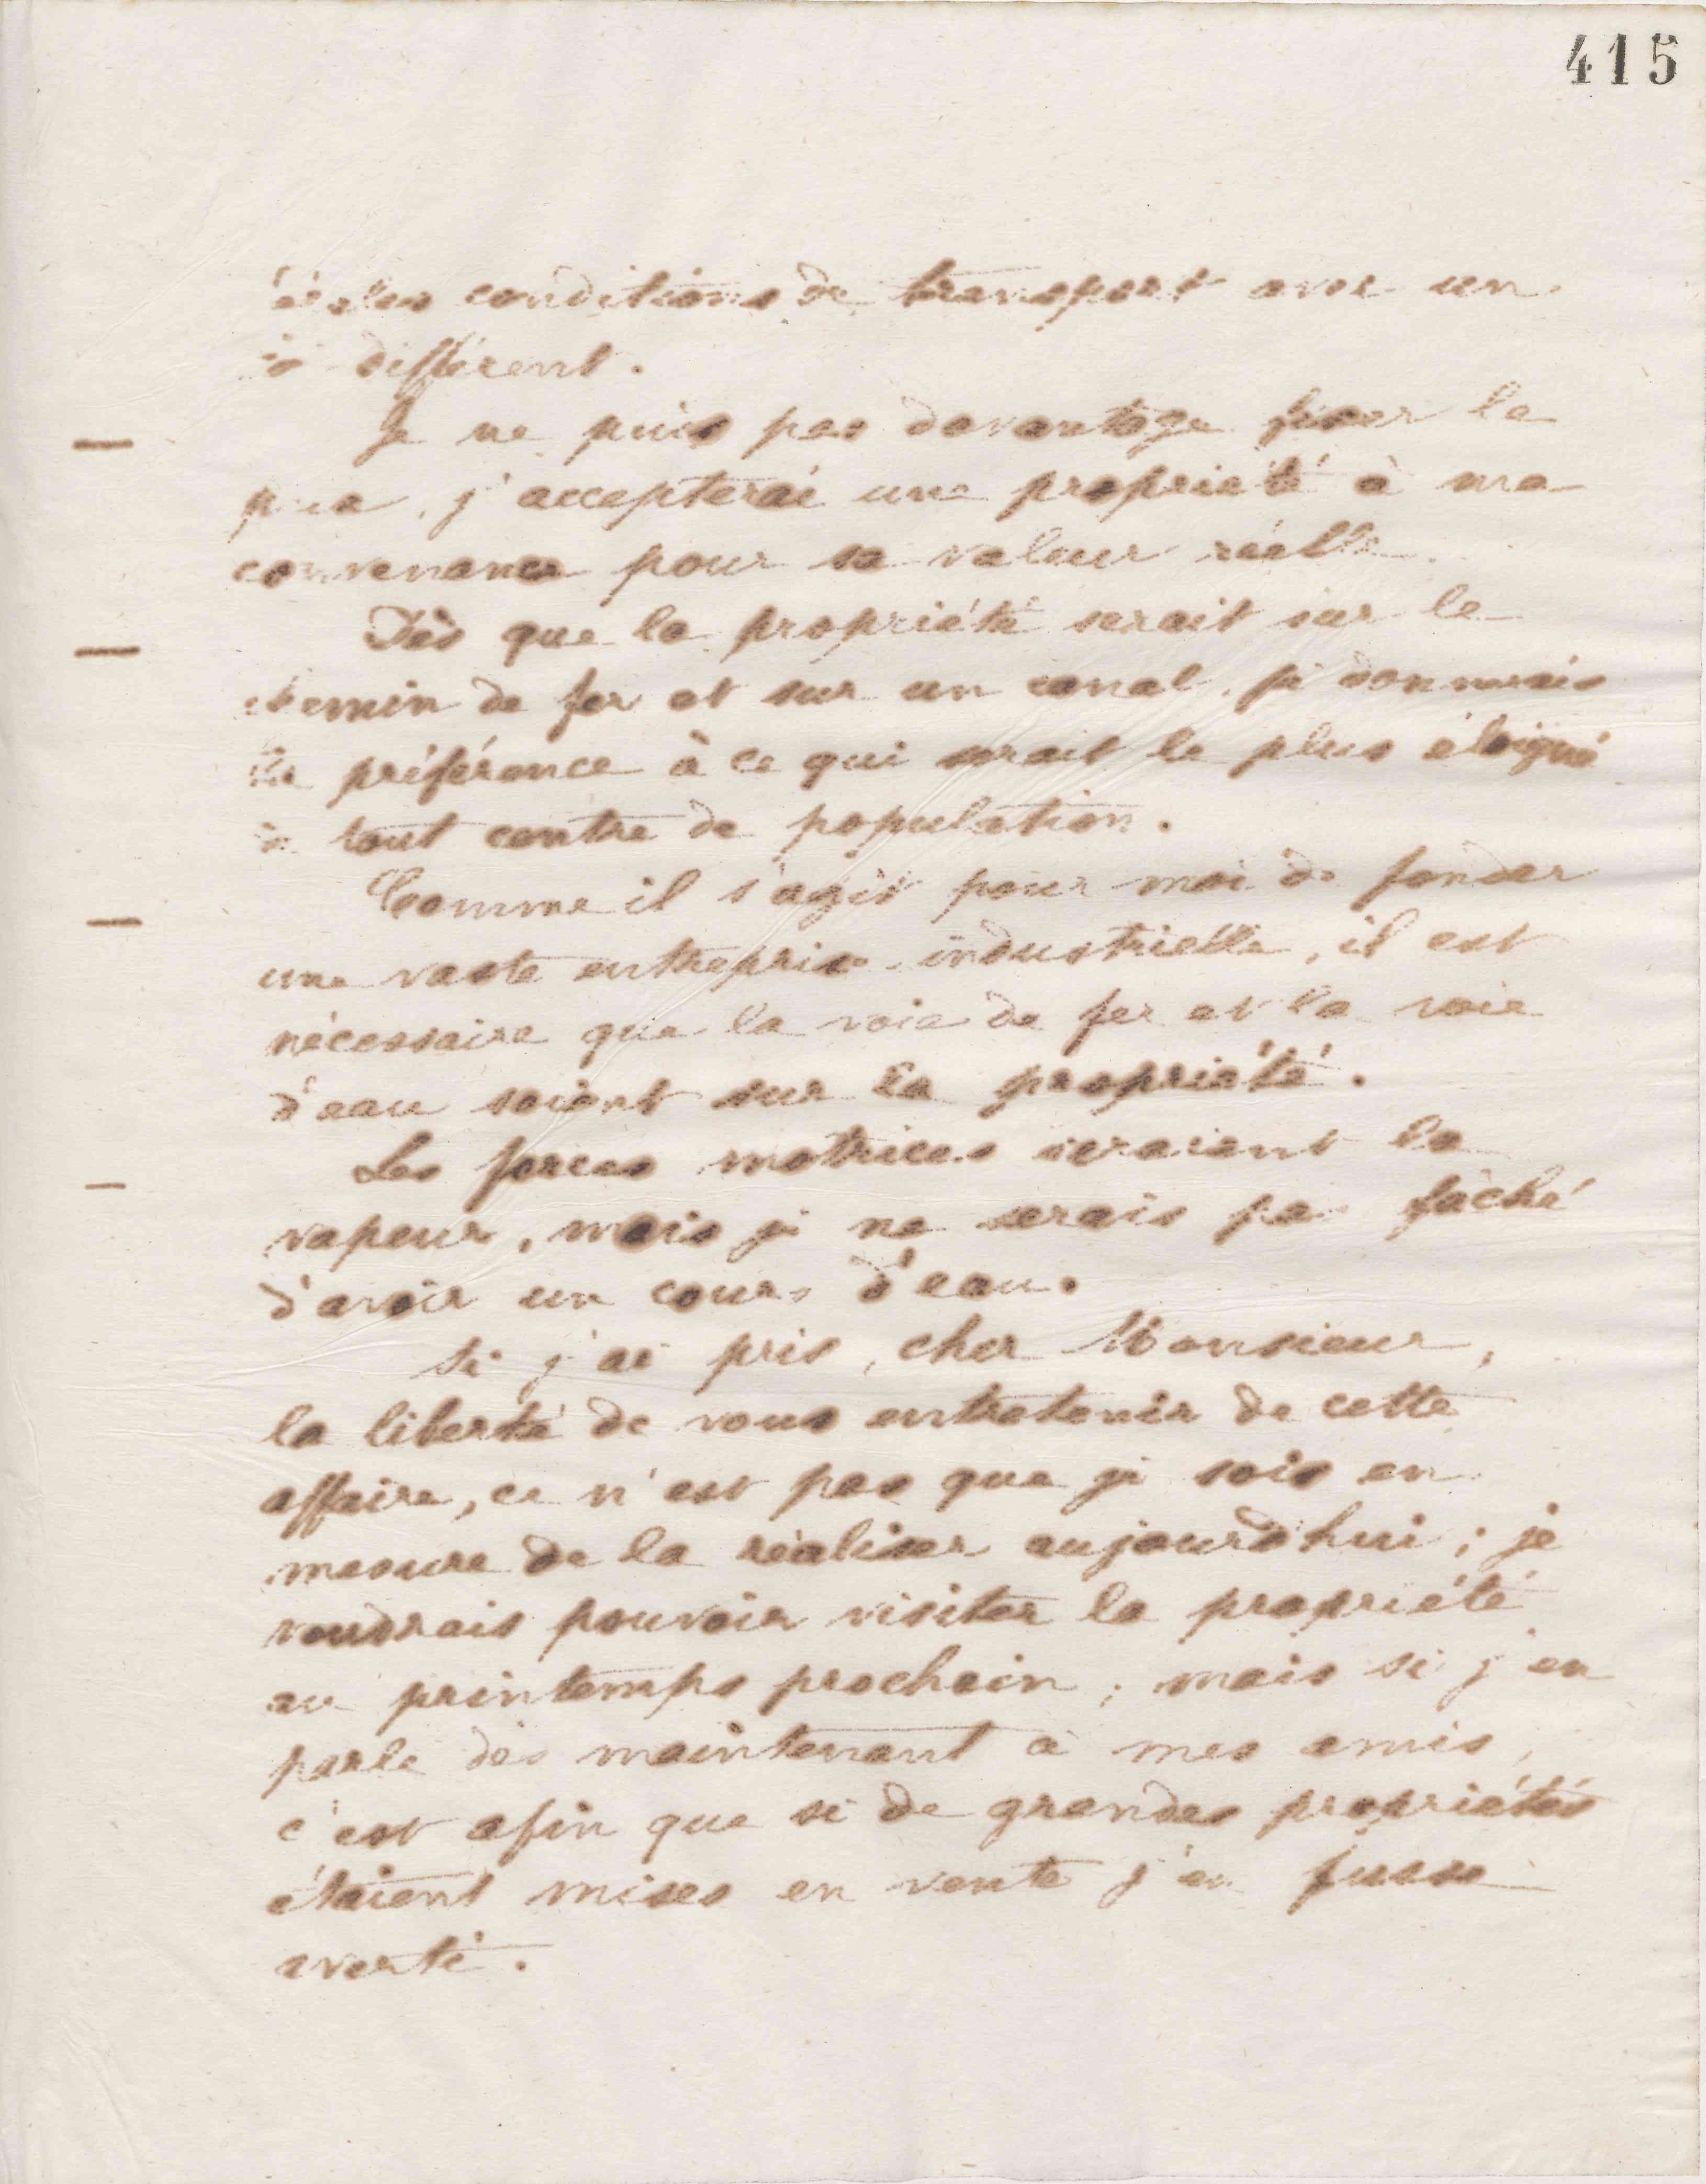 415
conditions de transport avec un
différent.
Je ne puis pas davantage fixer le
prix, j'accepterai une propriété à ma
convenance pour sa valeur réelle.
Dès que la propriété serait sur le
chemin de fer et sur un canal, je donnerais
la préférence à ce qui serait le plus éloigné
de tout centre de population.
Comme il s'agit pour moi de fonder
une vaste entreprise industrielle, il est
nécessaire que la voie de fer et la voie
d'eau soient sur la propriété.
Les forces motrices seraient la
vapeur, mais je ne serais pas fâché
d'avoir un cours d'eau.
Si j'ai pris, cher Monsieur,
la liberté de vous entretenir de cette
affaire, ce n'est pas que je sois en
mesure de la réaliser aujourd'hui ; je
voudrais pouvoir visiter la propriété
au printemps prochain ; mais si j'en
parle dès maintenant à mes amis,
c'est afin que si de grandes propriétés
étaient mises en vente j'en fusse
averti.